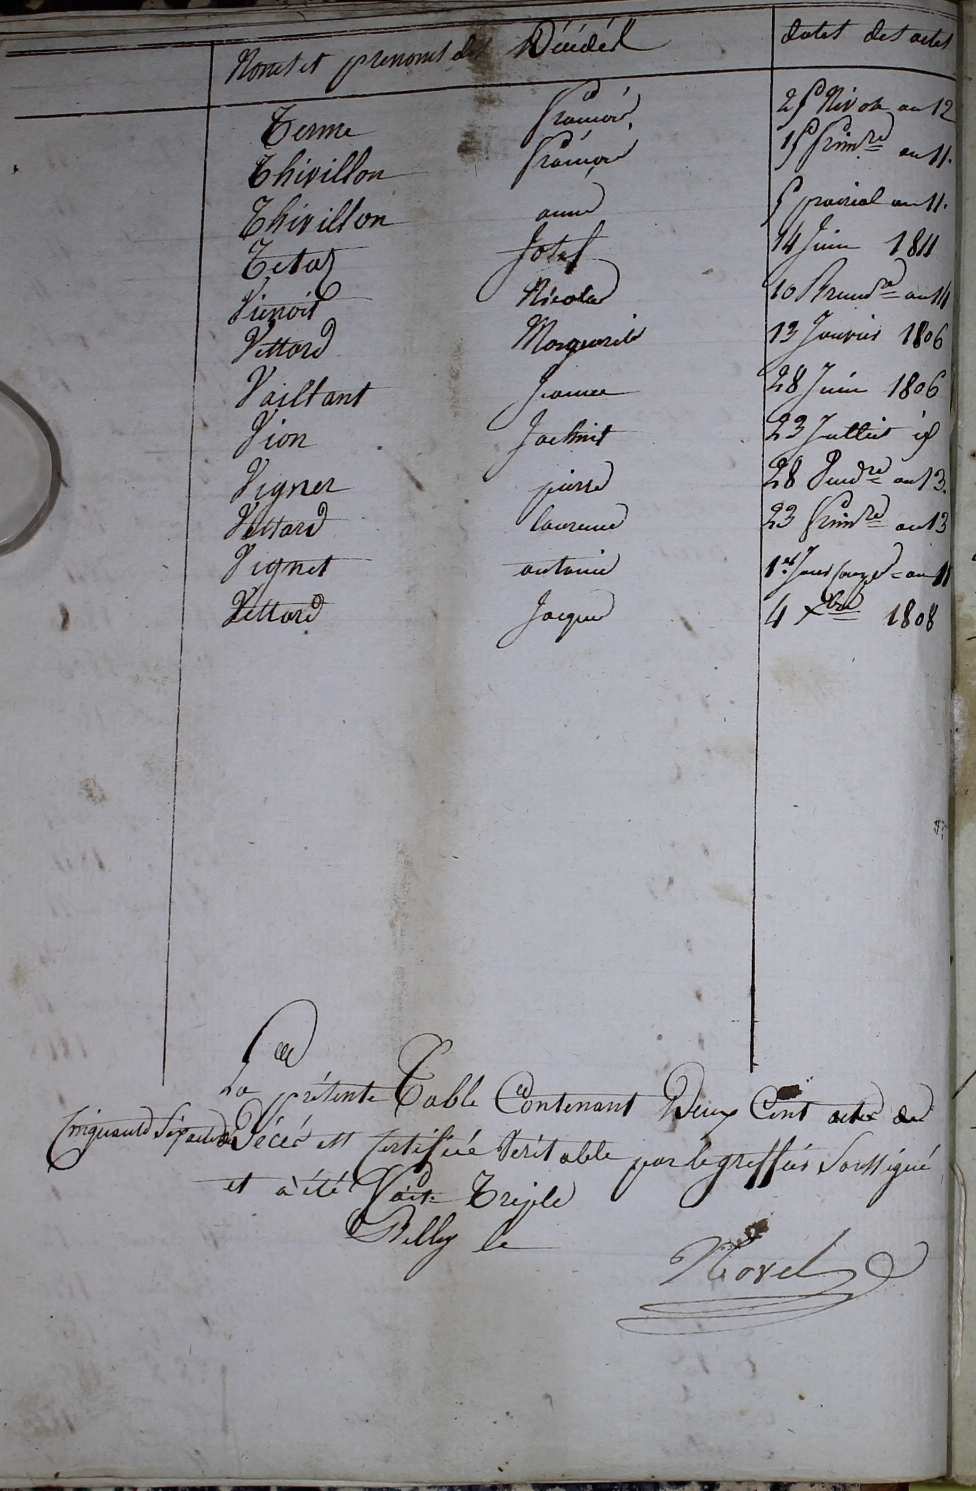 Noms et prenoms des Décédés dates des actes
Terme françois 25 Nivose an 12
Thivillon françois 15 frimre an 11.
Thivillon anne 5 prairial an 11.
Tetaz Josef 14 Juin 1811
Vienois Nicolas 10 Brumre an 14
Vettard Marguerite 13 Janvier 1806
Vaillant Jeanne 28 Juin 1806
Vion 23 Juillet id
Vignet pierre 28 Vendre an 13.
Vettard laurence 23 frimre an 13
Vignet antoine 1er an 11
Vettard Jacques 4 Xbre 1808
La présente Table Contenant Deux Cent actes de
Cinquante Six actes de Décès est Certifiée Véritable par le greffier Soussigné
et a été faite Triple
Belley le
Morel